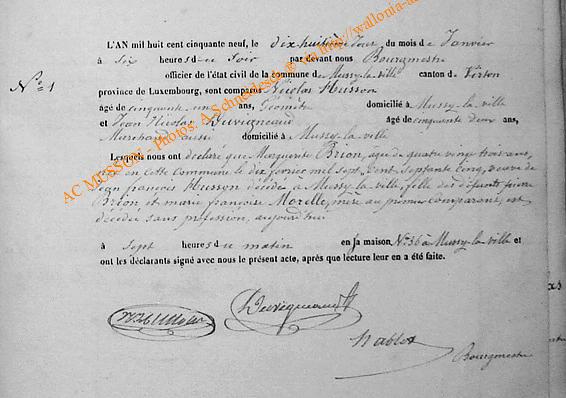 L'AN mil huit cent cinquante neuf, le dixhuitième Jour du mois de Janvier
à Six heures d u Soir par devant nous Bourgmestre
officier de l'état civil de la commune de Mussy-la-ville canton de Virton
N° 1
province de Luxembourg, sont comparus Nicolas Husson
âgé de cinquante un ans, Géomètre domicilié à Mussy-la-ville
et Jean Nicolas Duvigneaud âgé de cinquante deux ans,
Marchand aussi domicilié à Mussy-la-ville
Lesquels nous ont déclaré que Marguerite Brion, agée de quatre vingt trois ans,
née en cette Commune le dix fevrier mil sept Cent Septante cinq, veuve de
Jean françois Husson décédé à Mussy-la-ville, fille des défunts pierre
Brion et marie françoise Morelle, mère au premier comparant, est
décédée sans profession, aujourd'hui
à Sept heures d u matin en sa maison N° 56 à Mussy-la-ville et
ont les déclarants signé avec nous le présent acte, après que lecture leur en a été faite.
Duvigneaud
Nablot
Bourgmestre
AC MUSSON - Photos: A Schneider
via http://wallonia-